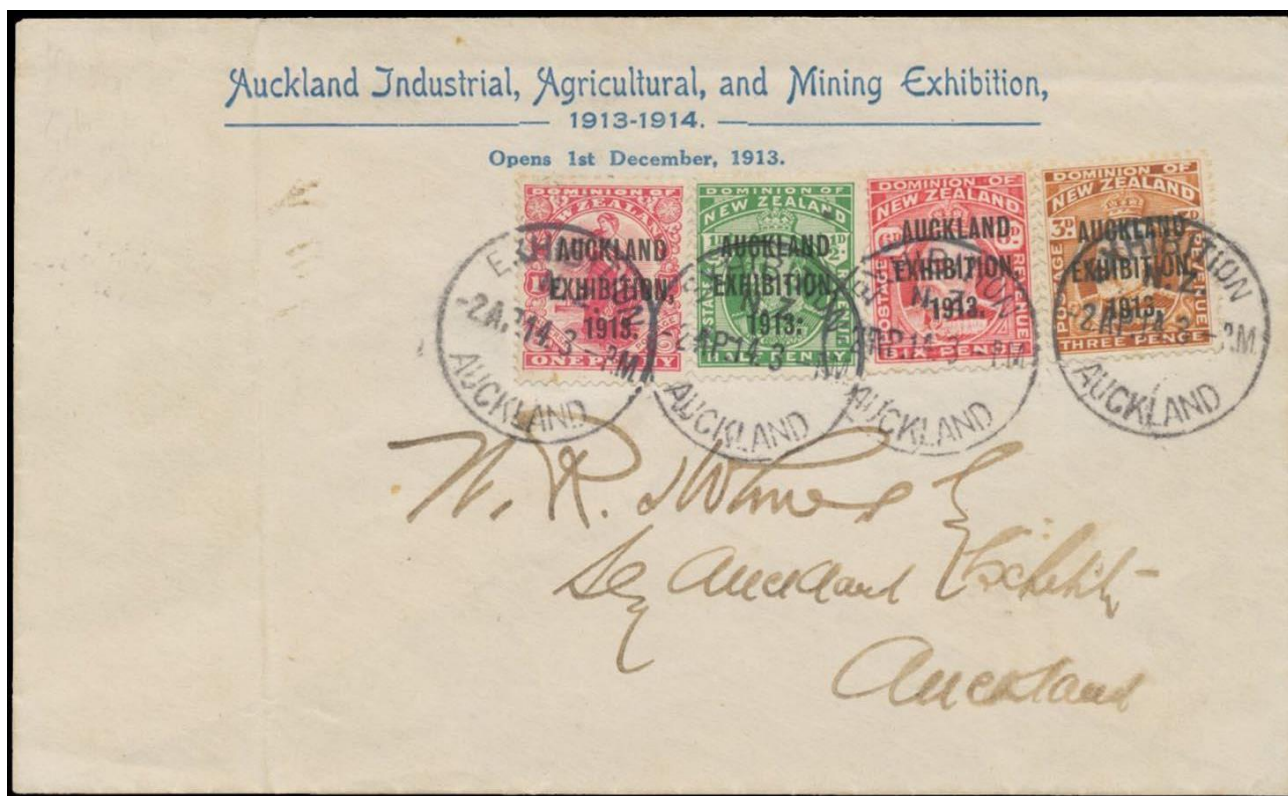 Auckland Industrial, Agricultural, and Mining Exhibition,
1913-1914.
Opens 1st December, 1913.
DOMINION OF
NEW ZEALAND
AUCKLAND
EXHIBITION,
1913.
ONE PENNY
DOMINION OF
NEW ZEALAND
½D.
AUCKLAND
EXHIBITION,
1913.
POSTAGE REVENUE
HALF PENNY
DOMINION OF
NEW ZEALAND
6D. 6D.
AUCKLAND
EXHIBITION,
1913.
POSTAGE REVENUE
SIX PENCE
DOMINION OF
NEW ZEALAND
3D.
AUCKLAND
EXHIBITION,
1913.
POSTAGE REVENUE
THREE PENCE
EXHIBITION
N.Z.
-2 AP 14. 3 - P.M
AUCKLAND
EXHIBITION
N.Z.
2 AP 14. 3
AUCKLAND
EXHIBITION
N.Z.
2 AP 14 3 - PM
AUCKLAND
EXHIBITION
N.Z.
-2 AP 14 3 - P.M
AUCKLAND
W. R. Holmes
Secy Auckland
Auckland